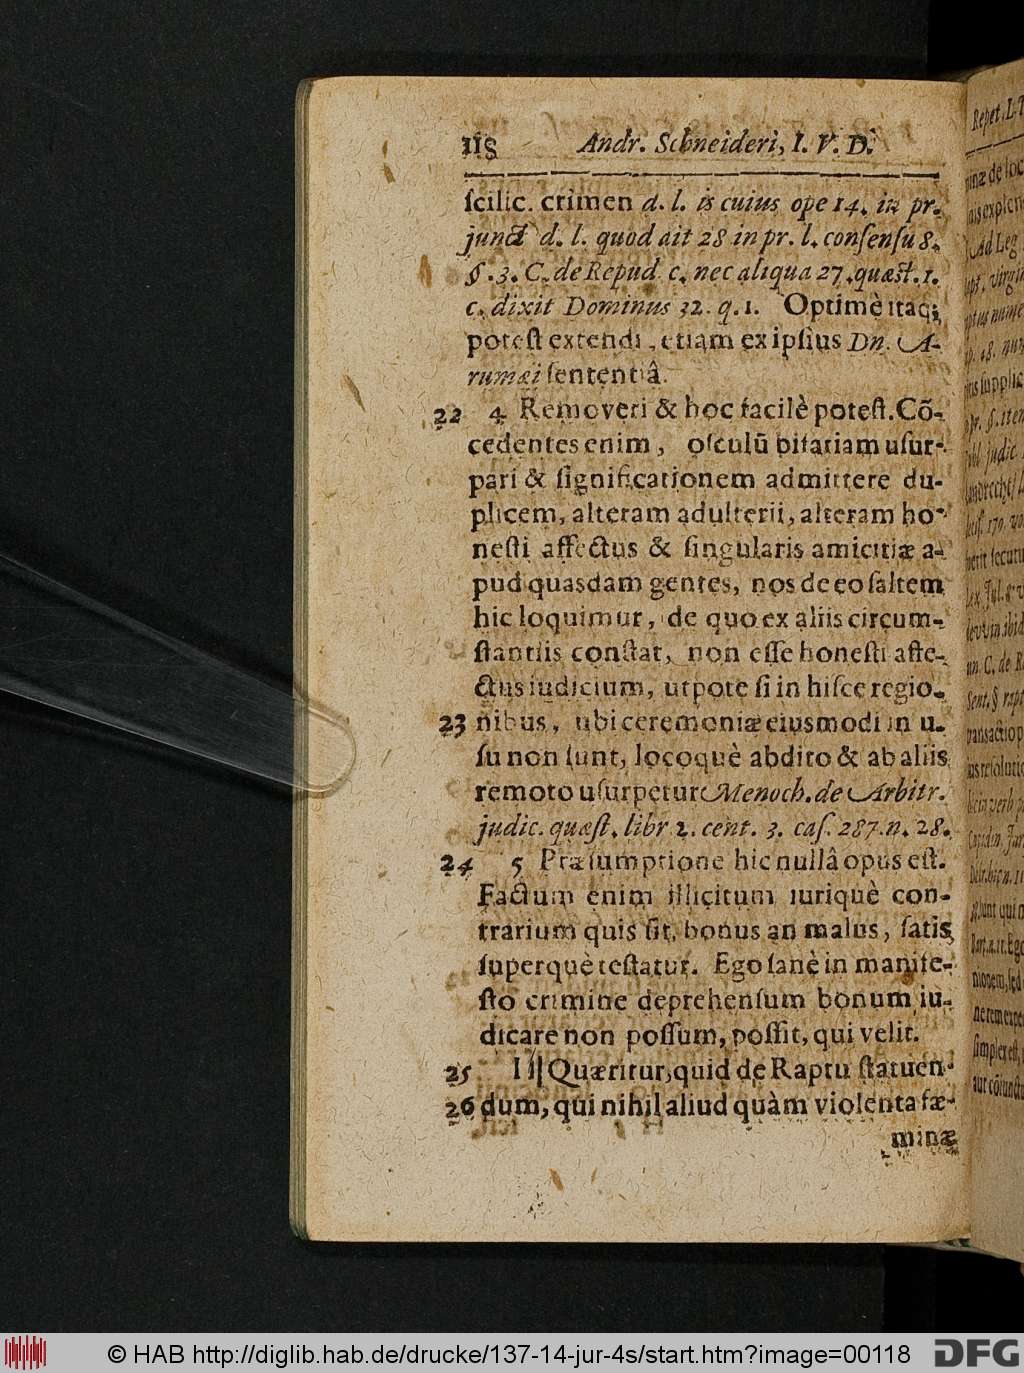 118 Andr. Schneideri, I. V. D.
ſcilic. crimen d. l. is cuius ope 14. in pr.
junct d. l. quod ait 28 in pr. l. conſenſu 8.
§. 3. C. de Repud. c. nec aliqua 27. quæſt. 1.
c. dixit Dominus 32. q. 1. Optimè itaq;
poteſt extendi, etiam ex ipſius Dn. A-
rumæi ſententiâ.
22 4. Removeri & hoc facilè poteſt. Cõ-
cedentes enim, oſculũ vitiatiam uſur-
pari & ſignificationem admittere du-
plicem, alteram adulterii, alteram ho-
neſti affectus & ſingularis amicitiæ a-
pud quasdam gentes, nos de eo ſaltem
hic loquimur, de quo ex aliis circum-
ſtantiis conſtat, non eſſe honeſti affe-
ctus iudicium, utpote ſi in hiſce regio-
23 nibus, ubi ceremoniæ eiusmodi in u-
ſu non ſunt, locoquè abdito & ab aliis
remoto uſurpetur Menoch. de Arbitr.
judic. quæſt. libr 2. cent. 3. caſ. 287. n. 28.
24 5 Præſumptione hic nullâ opus eſt.
Factum enim illicitum iuriquè con-
trarium quis ſit, bonus an malus, ſatis
ſuperquè teſtatur. Ego ſanè in manife-
ſto crimine deprehenſum bonum iu-
dicare non poſſum, poſſit, qui velit.
25 II Quæritur, quid de Raptu ſtatuen-
26 dum, qui nihil aliud quàm violenta fæ-
minæ
© HAB http://diglib.hab.de/drucke/137-14-jur-4s/start.htm?image=00118
DFG